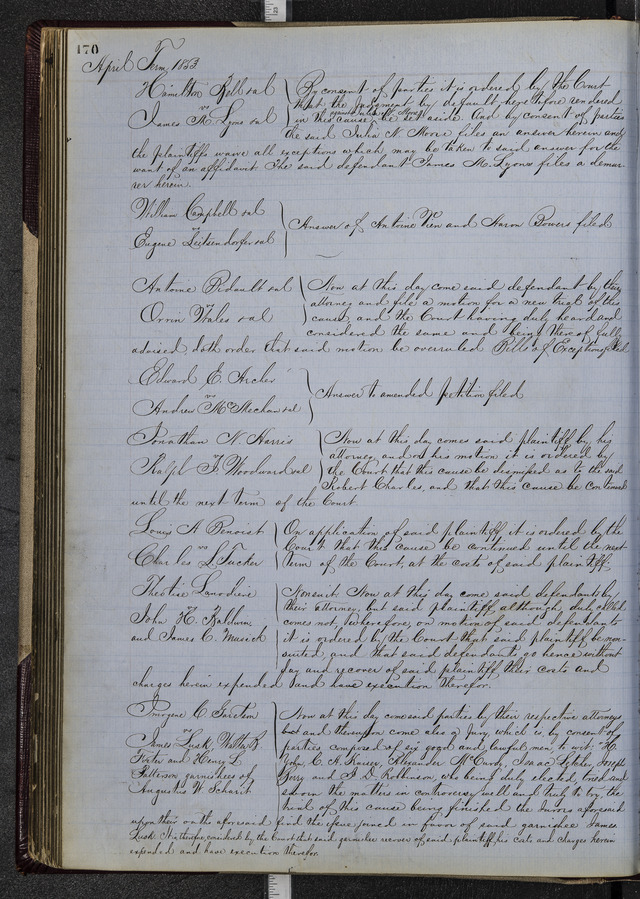 170
April Term 1853
Hamilton Bell et al
vs
James M. Lyons et al
By consent of parties it is ordered by the Court
that the judgment by default heretofore rendered
in this cause be set aside. And by consent of parties
the said Julia N. Moore files an answer herein and
the plaintiffs waive all exceptions which may be taken to said answer for the
want of an affidavit The said defendant James M. Lyons files a demur
rer herein.
William Campbell et al
vs
Eugene Leitensdorfer et al
Answer of Antoine and Aaron Bowers filed
Antoine et al
Orrin et al
Now at this day come said defendant by their
attorney and file a motion for a new trial of this
cause, and the Court having duly heard and
considered the same and being thereof fully
advised doth order that said motion be overruled Bills of Exceptions filed
Edward E. Archer
vs
Andrew McMechan et al
Answer to amended petition filed
Jonathan N. Harris
Ralph F. Woodward et al
Now at this day comes said plaintiff by his
attorney, and on his motion it is ordered by
the Court that this cause be dismissed as to the said
Robert Charles, and that this cause be continued
until the next term of the Court.
Louis A Benoist
vs
Charles L. Tucker
On application of said plaintiff it is ordered by the
Court that this cause be continued until the next
term of the Court, at the costs of said plaintiff.
John H. Baldwin
and James C. Musick
Nonsuit. Now at this day come said defendants by
their attorney, but said plaintiff although duly called
comes not, Wherefore, on motion of said defendants
it is ordered by the Court that said plaintiff be non-
suited, and that said defendants go hence without
day and recover of said plaintiff their costs and
charges herein expended and have execution therefor.
vs
James Lusk, Walter B
Foster and Henry L
Patterson garnishees of
Augustus W
Now at this day come said parties by their respective attorneys
and thereupon come also a Jury, which is by consent of
parties composed of six good and lawful men, to wit: H.
John C. H. Krauser, Alexander McCurdy, Isaac Joseph
and J. D. Robinson, who being duly elected, tried and
sworn the matters in controversy well and truly to try the
trial of this cause being finished the Jurors aforesaid
upon their oath aforesaid find the issue joined in favor of said garnishee James
Lusk. It is therefore considered by the Court that said garnishee recover of said plaintiff his costs and charges herein
expended and have execution therefor.